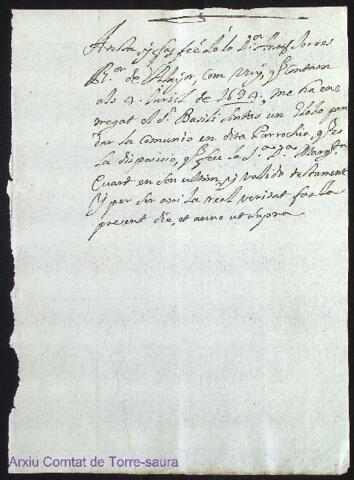 fas fee Yo lo Dr Torres
Ror de com vuy
als 4 Juriol de 1694, me ha en
tregat el Sr Basili un
dar la comunio en dita Parrochia, y es
la disposicio, q feu la Sra Da Margta
Cuart en son ultim, y valido testament
Y per ser axi la real veritat fas la
present die, et anno ut supra
Arxiu Comtat de Torre-saura